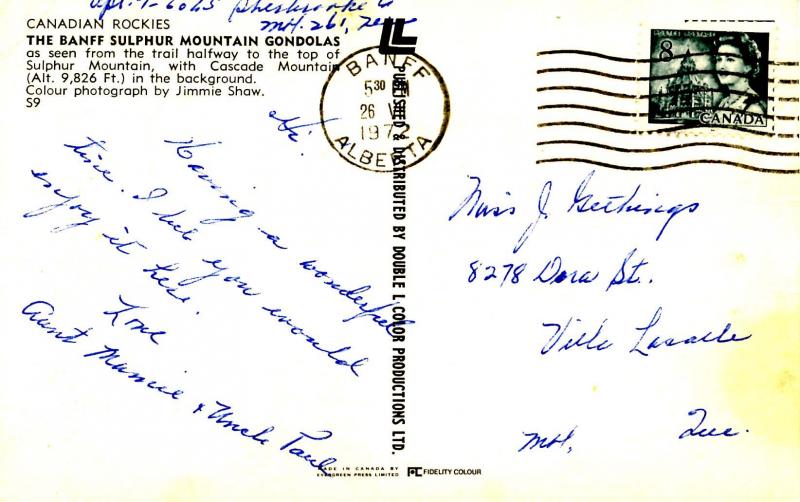 Apt. 1-6065 Sherbrooke
Mtl. 261,
CANADIAN ROCKIES
THE BANFF SULPHUR MOUNTAIN GONDOLAS
as seen from the trail halfway to the top of
Sulphur Mountain, with Cascade Mountain
(Alt. 9,826 Ft.) in the background.
Colour photograph by Jimmie Shaw.
S9
Hi.
Having a wonderful
time. I bet you would
enjoy it here.
Love
Aunt Mamie & Uncle Paul
PUBLISHED & DISTRIBUTED BY DOUBLE L COLOR PRODUCTIONS LTD.
BANFF
5 30
26 VI
1972
ALBERTA
8
CANADA
Miss J. Gethings
8278 Dora St..
Ville Lasalle
Mtl, Que.
MADE IN CANADA BY
EVERGREEN PRESS LIMITED
FIDELITY COLOUR